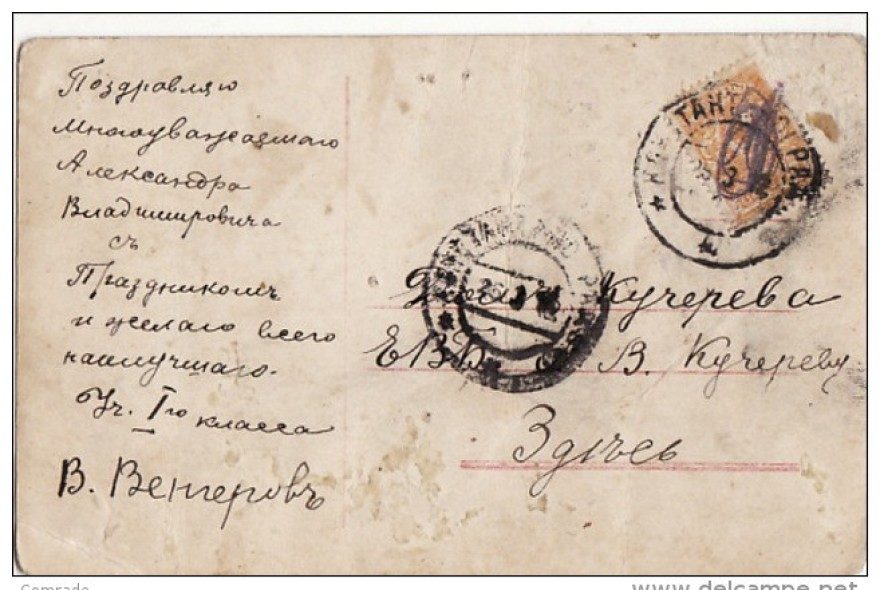 Поздравляю
Многоуважаемаго
Александра
Владимировича
съ
Праздникомъ
и желаю всего
наилучшаго.
Уч. Iго класса
В. Венгеровъ
Кучерева
ЕВБ. В. Кучереву
Здѣсь
Comrade
www.delcampe.net